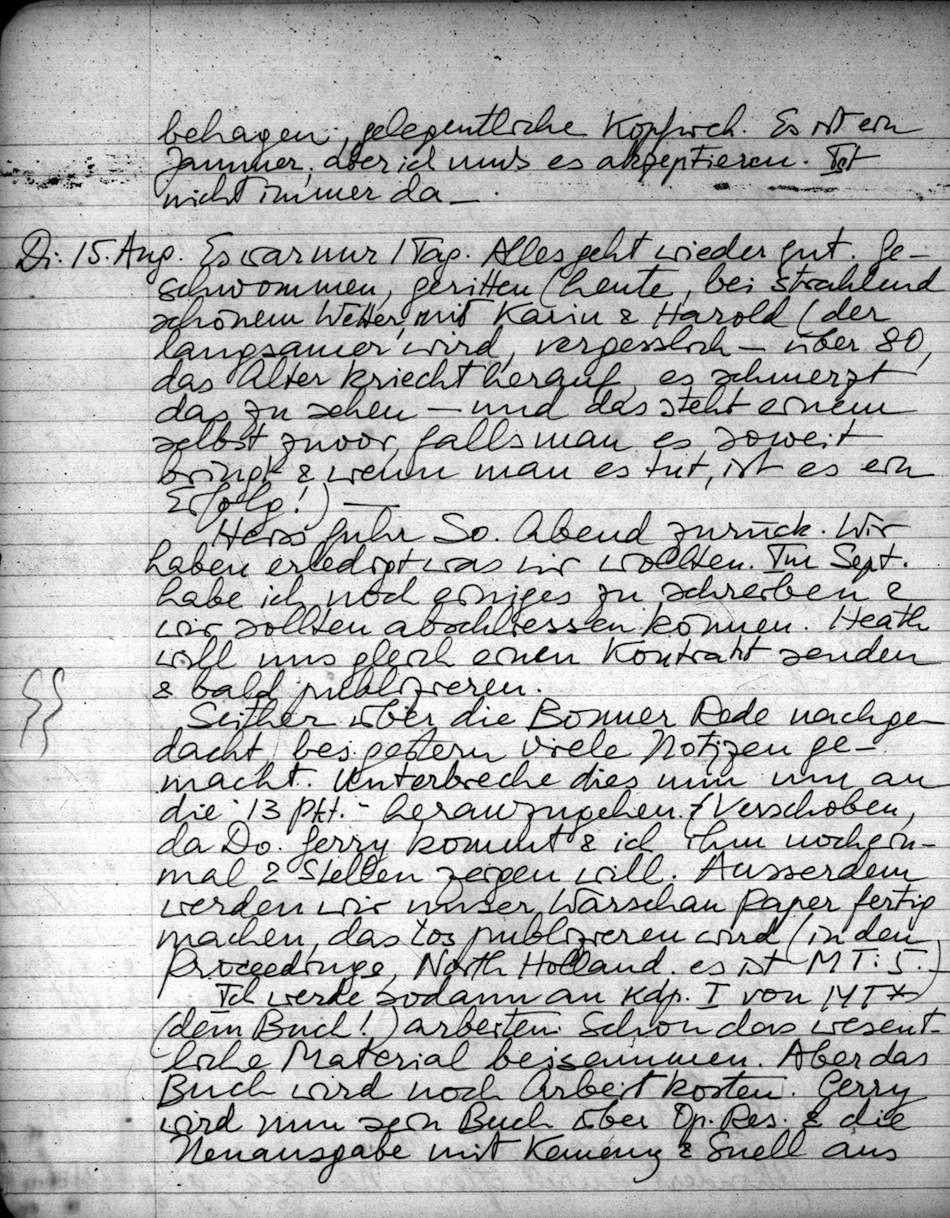 behagen, gelegentliche Kopfweh. Es ist ein
Jammer, aber ich muss es akzeptieren. Ist
nicht immer da —.
Di. 15. Aug. Es war nur 1 Tag. Alles geht wieder gut. Ge-
schwommen, geritten (heute, bei strahlend
schönem Wetter, mit Karin & Harold (der
langsamer wird, vergesslich — über 80,
das Alter kriecht herauf, es schmerzt
das zu sehen — und das steht einem
selbst zuvor, falls man es soweit
bringt & wenn man es tut, ist es ein
Erfolg!) —
fuhr So. Abend zurück. Wir
haben erledigt was wir wollten. Im Sept.
habe ich noch einiges zu schreiben &
wir sollten abschliessen können. Heath
will uns gleich einen Kontrakt senden
& bald publizieren.
Seither über die Bonner Rede nachge
dacht, bes. gestern viele Notizen ge-
macht. Unterbreche dies nun um an
die 13 Pkt. - heranzugehen. / Verschoben,
da Do. Gerry kommt & ich ihm nochein-
mal 2 Stellen zeigen will. Ausserdem
werden wir unser Warschau Paper fertig
machen, das Łos publizieren wird (in den
Proceedings, North Holland. es ist MT: 5.)
Ich werde sodann an Kap. I von MTX
(dem Buch!) arbeiten. Schon das wesent-
liche Material beisammen. Aber das
Buch wird noch Arbeit kosten. Gerry
wird nun sein Buch über Op. Res. & die
Neuausgabe mit Kemeny & Snell aus